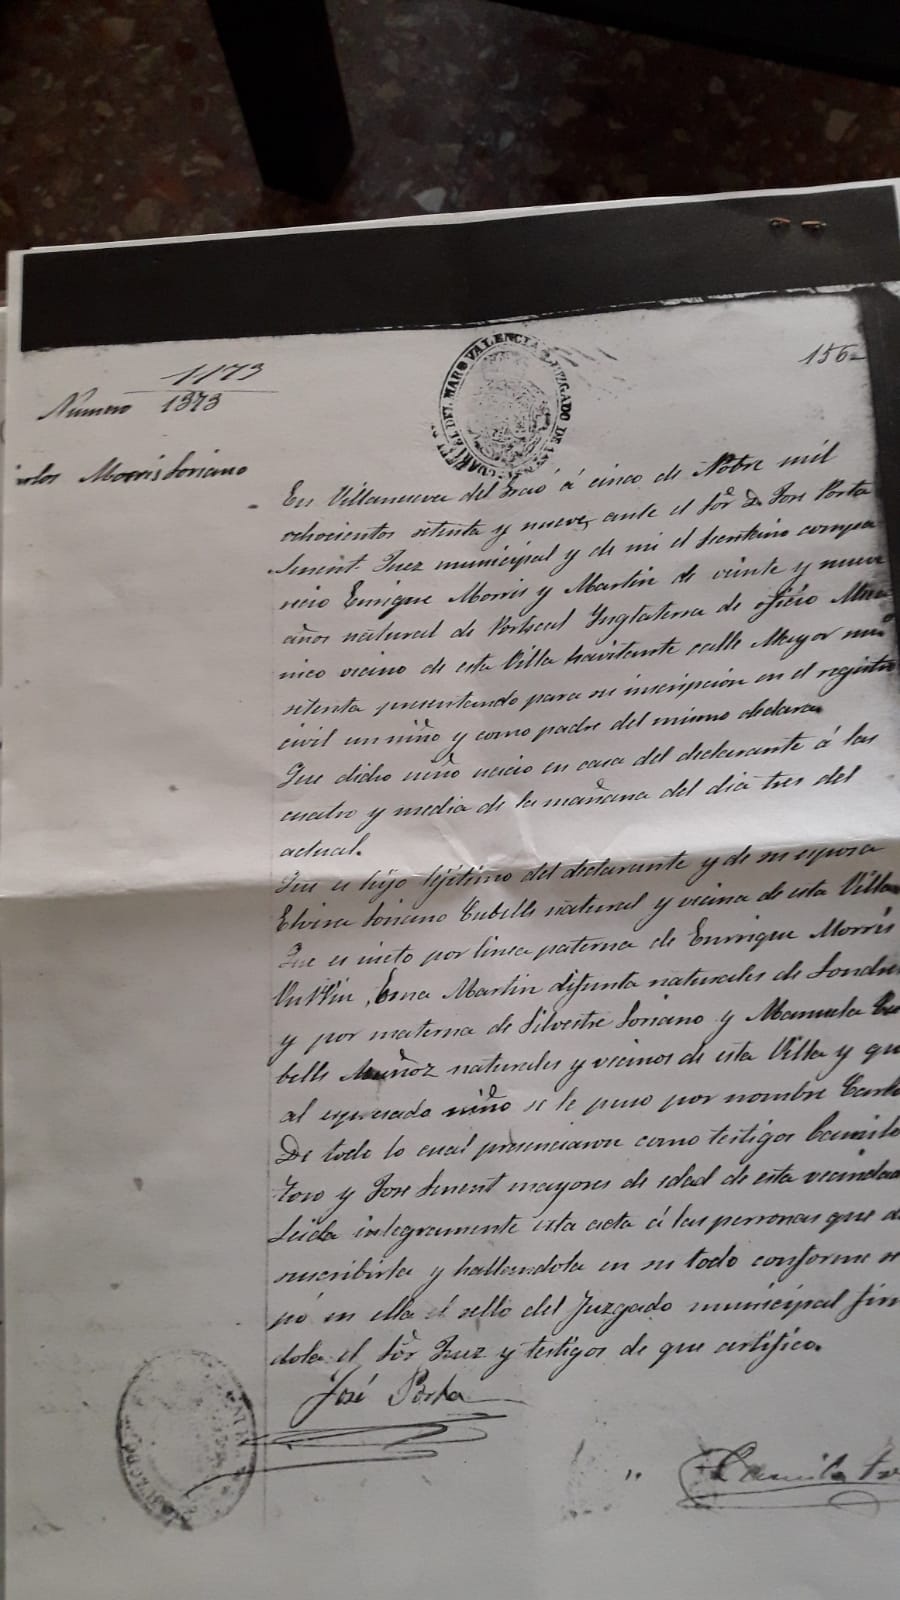 1173
Número 1373
156
CUARTEL DEL MAR VALENCIA JUZGADO DE
Morris Soriano
En Villanueva del Graó á cinco de Nobre mil
ochocientos setenta y nueve, ante el Sor D. Jose Porta
Sment. Juez municipal y de mi el Secretario compa
recio Enrique Morris y Martin de veinte y nueve
años natural de Portseal Ynglaterra de oficio
nico vecino de esta Villa havitante calle Mayor
setenta presentando para su inscripción en el registro
civil un niño y como padre del mismo declara.
Que dicho niño nacio en casa del declarante á las
cuatro y media de la mañana del dia tres del
actual.
Que es hijo lejítimo del declarante y de su esposa
Elvira Soriano Cubells natural y vecina de esta Villa
Que es nieto por linea paterna de Enrrique Morris
Martin difunta naturales de Londre
y por materna de Silvestre Soriano y Manuela Cu
bells Muñoz naturales y vecinos de esta Villa y que
al espresado niño se le puso por nombre Carlo
De todo lo cual presenciaron como testigos Camilo
Toro y Jose Sment mayores de edad de esta vecindad
Leida integramente esta acta á las personas que d
suscribirla y hallandola en su todo conforme se
en ella el sello del Juzgado municipal firm
dola el Sor Juez y testigos de que certifico.
José Porta
Camilo